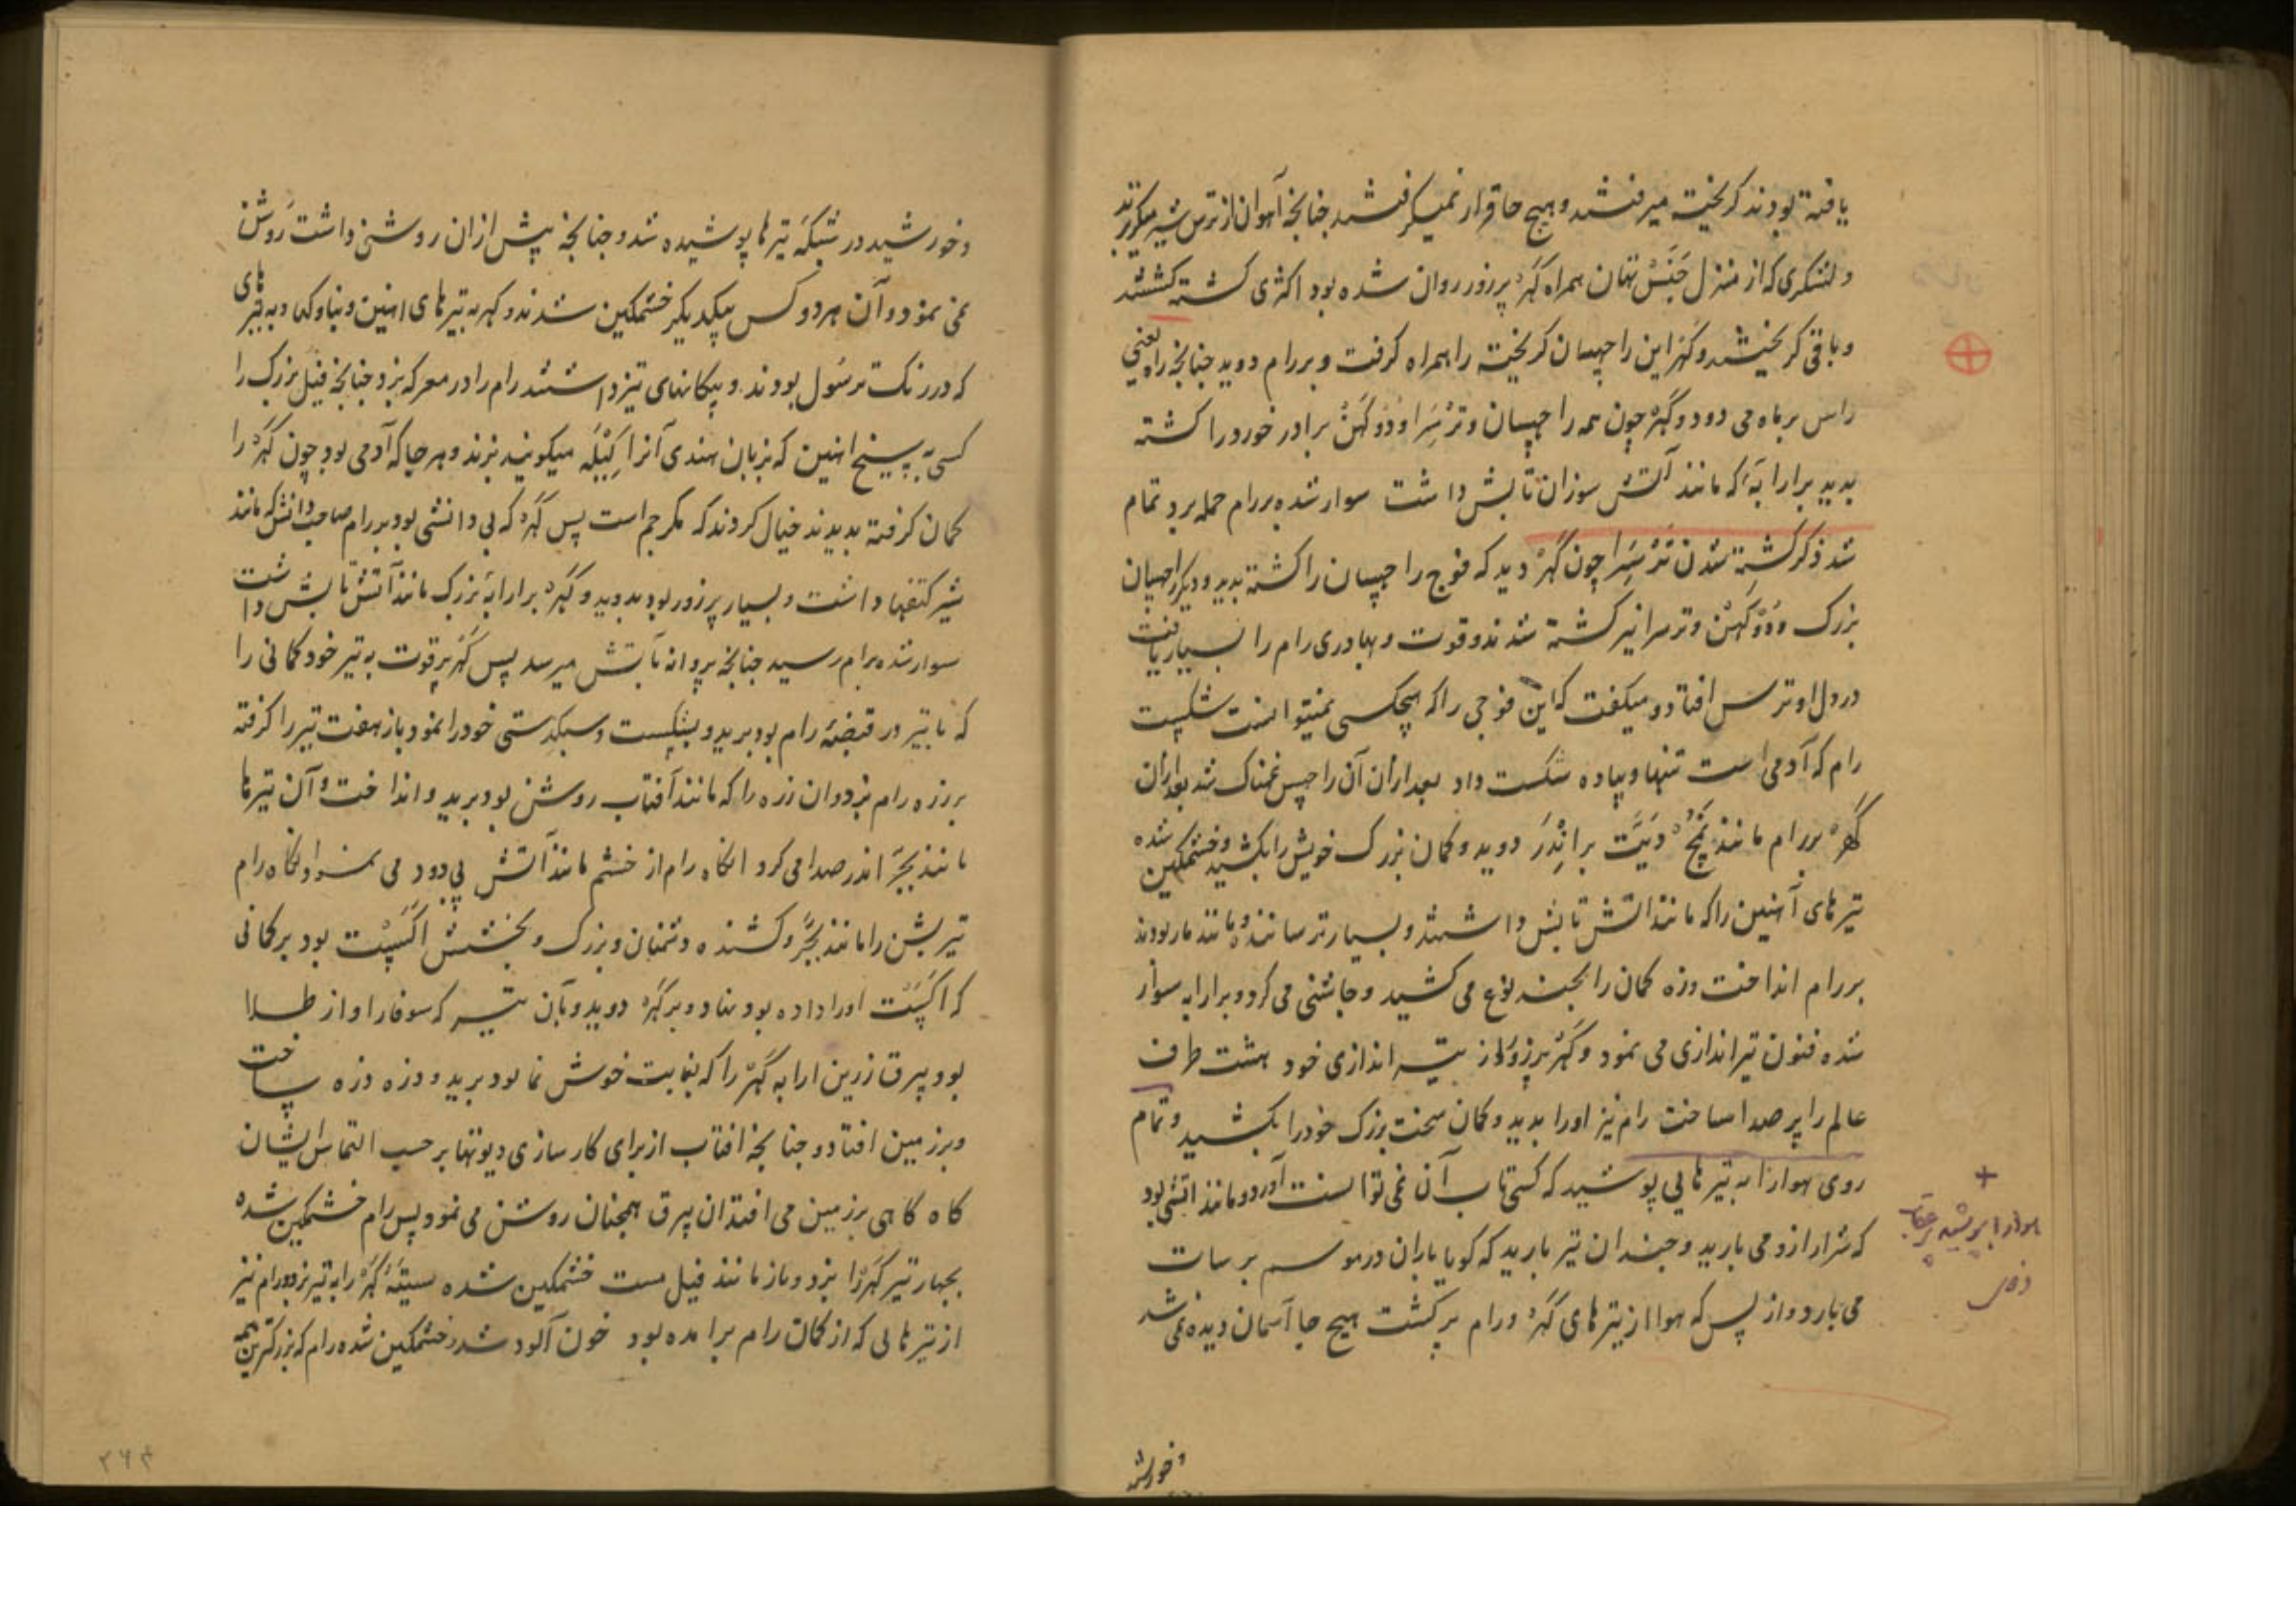 یافته بودند گریخته میرفتند و هیچ جا قرار نمیگرفتند چنانچه آهوان از ترس شیر میگریزند
و لشکری که از منزل جَنَسْتهان همراه کَهَر پرزور روان شده بود اکثری کشته گشتند
و باقی گریختند و کهر این راچهسان گریخته را همراه گرفت و بر رام دوید چنانچه راه یعنی
راس بر ماه می دود و کهر چون همه راچهسان و ترسرا و دوکهن برادر خورد را کشته
بدید بر ارابهٔ که مانند آتش سوزان تابش داشت سوار شده بر رام حمله برد تمام
شد ذکر کشته شدن ترسرا چون کهر دید که فوج راچهسان را کشته بدید و دیگر راچهسان
بزرگ دوکهن و ترسرا نیز کشته شدند و قوت و بهادری رام را بسیار یافت
در دل او ترس افتاد و میگفت که این فوجی را که هیچکسی نمیتوانست شکست
رام که آدمی است تنها و پیاده شکست داد بعد ازان آن راچهس غمناک شد بعد ازان
کهر بر رام مانند نمچ دیت بر اندر دوید و کمان بزرگ خویش را بکشید و خشمگین شده
تیرهای آهنین را که مانند آتش تابش داشتند و بسیار ترسانند و مانند مار بودند
بر رام انداخت و زه کمان را بچند نوع می کشید و چاشنی می کرد و بر ارابه سوار
شده فنون تیراندازی می نمود و کهر پرزور از تیراندازی خود هشت طرف
عالم را پرصدا ساخت رام نیز او را بدید و کمان سخت بزرگ خود را بکشید و تمام
روی هوا را به تیرهایی پوشید که کسی تاب آن نمی توانست آورد و مانند آتشی بود
که شرار ازو می بارید و چندان تیر بارید که گویا باران در موسم برسات
می بارد و از بس که هوا از تیرهای کهر و رام پر گشت هیچ جا آسمان دیده نمی شد
و خورشید
+
هوا را
و خورشید در شبکهٔ تیرها پوشیده شد و چنانچه پیش ازان روشنی داشت روشن
نمی نمود و آن هر دو کس بیکدیگر خشمگین شدند و کهر به تیرهای آهنین و بناوکها و به تیرهای
که در رنگ ترسول بودند و پیکانهای تیز داشتند رام را در معرکه بزد چنانچه فیل بزرگ را
کسی به سیخ آهنین که بزبان هندی آنرا میگویند بزند و هر جا که آدمی بود چون کهر را
کمان گرفته بدیدند خیال کردند که مگر جم است پس کهر که بی دانشی بود بر رام صاحب دانش که مانند
شیر کتفها داشت و بسیار پرزور بود بدوید و کهر بر ارابهٔ بزرگ مانند آتش تابش داشت
سوار شده برام رسید چنانچه پروانه بآتش میرسد پس کهر پرقوت به تیر خود کمانی را
که با تیر در قبضهٔ رام بود ببرید و بشکست و سبکدستی خود را نمود و باز هفت تیر را گرفته
بر زره رام بزد و ان زره را که مانند آفتاب روشن بود ببرید و انداخت و آن تیرها
مانند بجر اندر صدا می کرد انگاه رام از خشم مانند آتش بی دود می نمود و انگاه رام
تیر بشن را مانند بجر و کشنده دشمنان و بزرگ و بخشش اکست بود بر کمانی
که اکست او را داده بود بنهاد و بر کهر دوید و بآن تیر که سوفار او از طلا
بود بیرق زرین ارابه کهر را که بغایت خوش نما بود ببرید و ذره ذره ساخت
و بر زمین افتاد و چنانچه افتاب از برای کارسازی دیوتها بر حسب التماس ایشان
گاه گاهی بر زمین می افتد ان بیرق همچنان روشن می نمود پس رام خشمگین شده
بچهار تیر کهر را بزد و باز مانند فیل مست خشمگین شده سینهٔ کهر را به تیر بزد و رام نیز
از تیرهایی که از کمان رام برامده بود خون آلود شد و خشمگین شده رام که بزرگترین همه